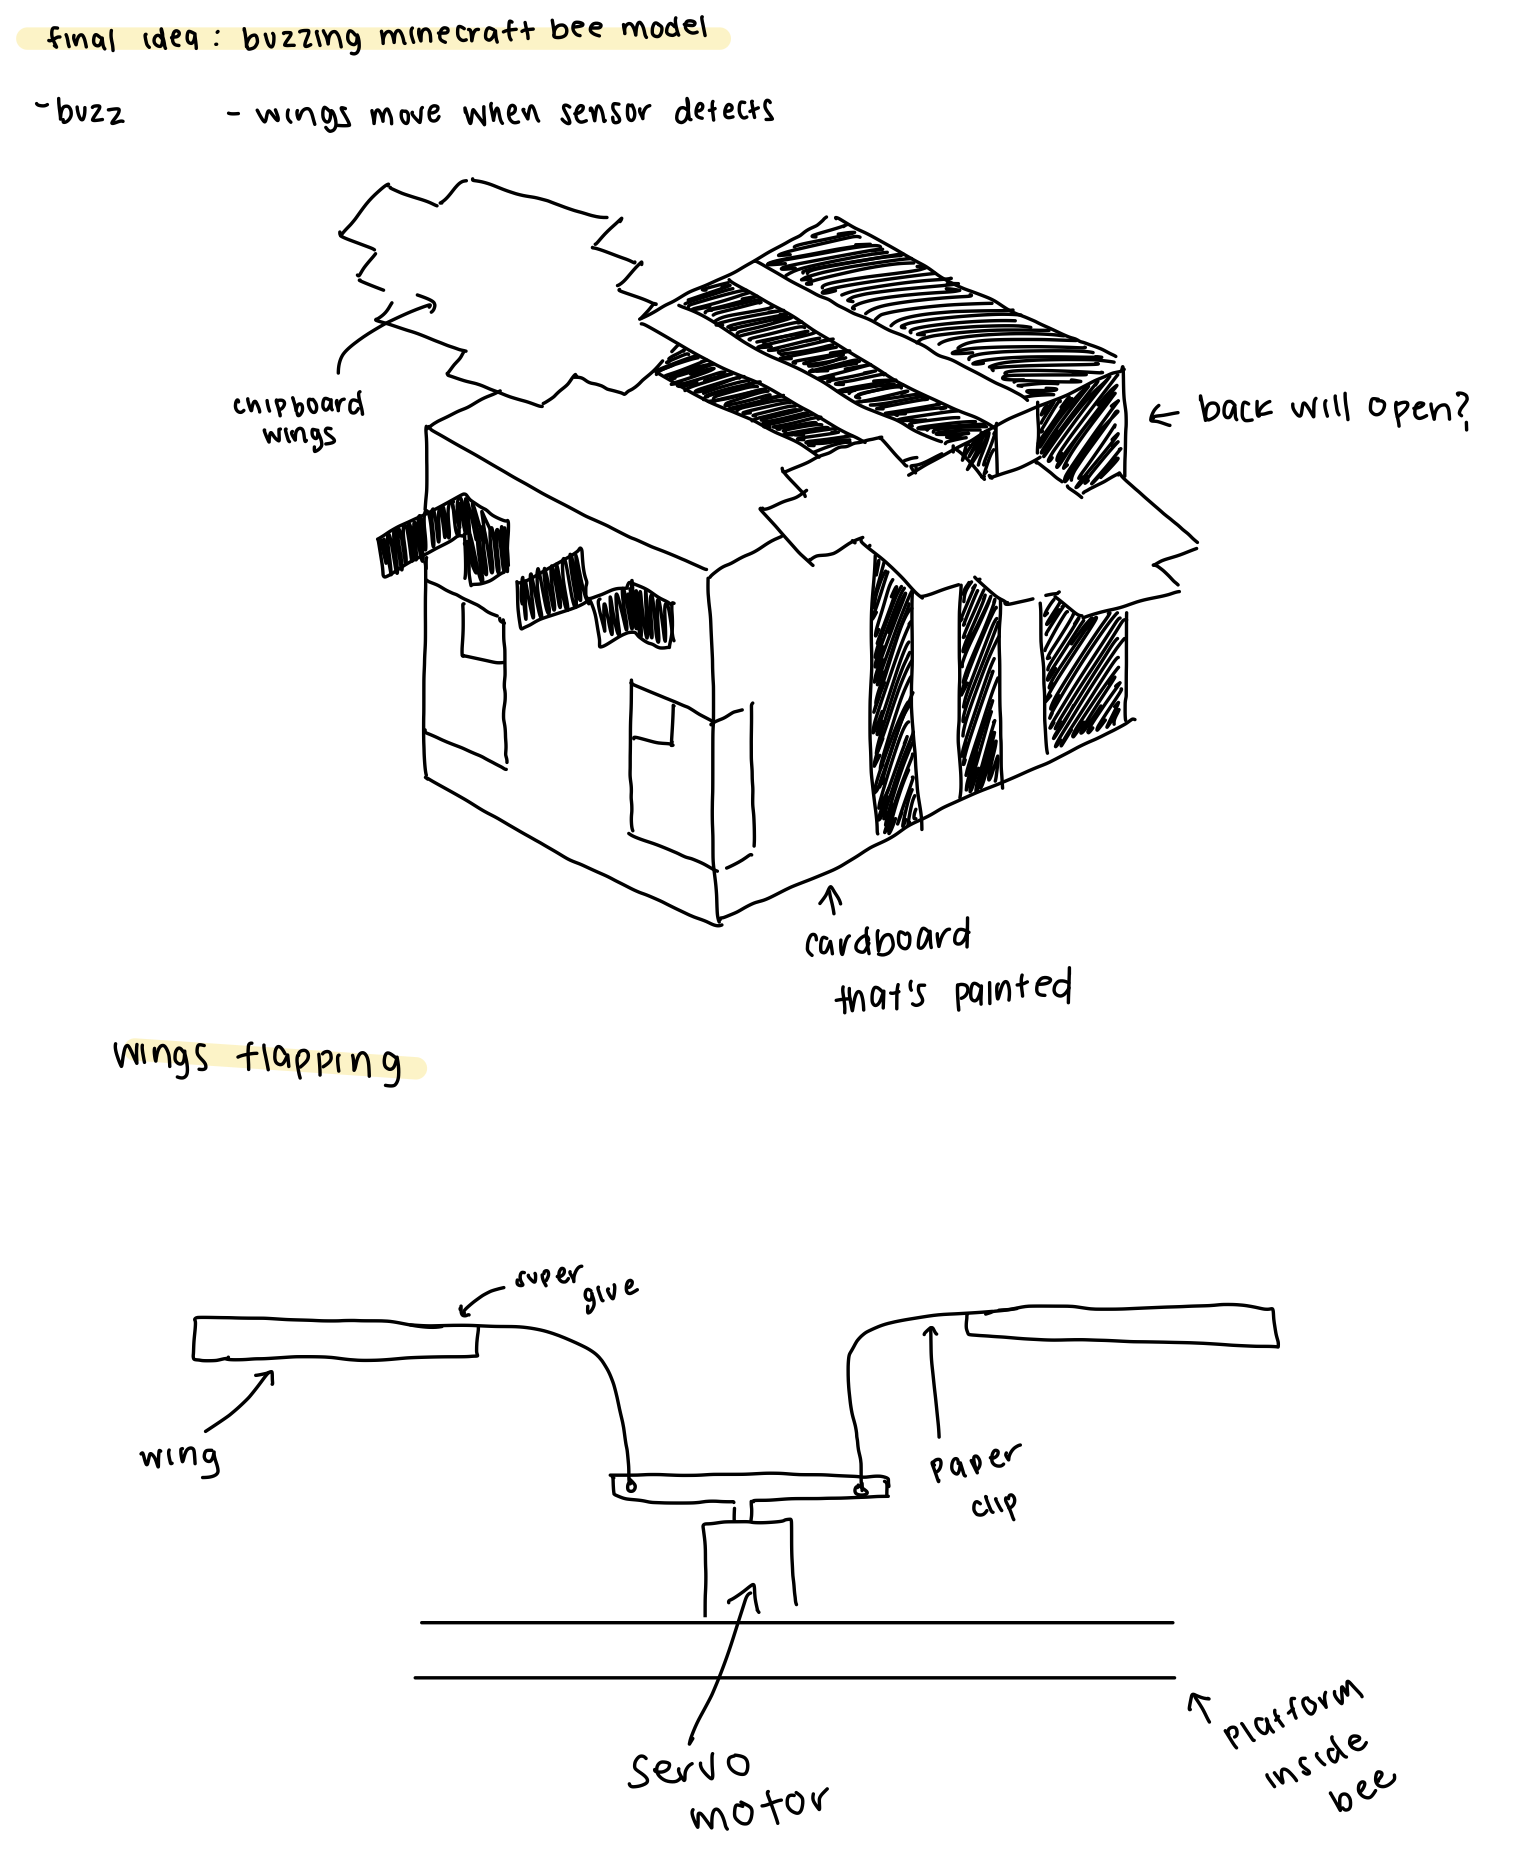 final idea: buzzing minecraft bee model
- buzz - wings move when sensor detects
chipboard
wings
back will open?
cardboard
that's painted
wings flapping
super
glue
wing
paper
clip
servo
motor
platform
inside
bee